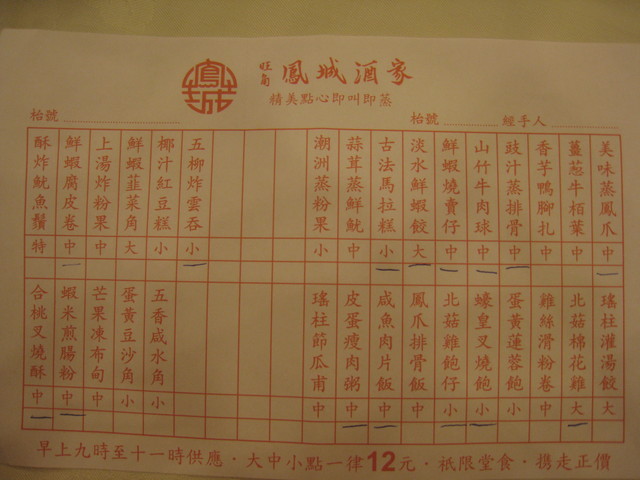 旺角 鳳城酒家
精美點心即叫即蒸
枱號
枱號 經手人
美味蒸鳳爪 中
薑蔥牛栢葉 中
香芋鴨腳扎 中
豉汁蒸排骨 中
山竹牛肉球 中
鮮蝦燒賣仔 中
淡水鮮蝦餃 大
古法馬拉糕 小
蒜茸蒸鮮魷 中
潮洲蒸粉果 小
五柳炸雲吞 小
椰汁紅豆糕 小
鮮蝦韮菜角 大
上湯炸粉果 中
鮮蝦腐皮卷 中
酥炸魷魚鬚 特
瑤柱灌湯餃 大
北菇棉花雞 大
雞絲滑粉卷 中
蛋黃蓮蓉飽 小
蠔皇叉燒飽 小
北菇雞飽仔 小
鳳爪排骨飯 中
咸魚肉片飯 中
皮蛋瘦肉粥 中
瑤柱節瓜甫 中
五香咸水角 小
蛋黃豆沙角 小
芒果凍布甸 中
蝦米煎腸粉 中
合桃叉燒酥 中
早上九時至十一時供應·大中小點一律12元·祇限堂食·携走正價